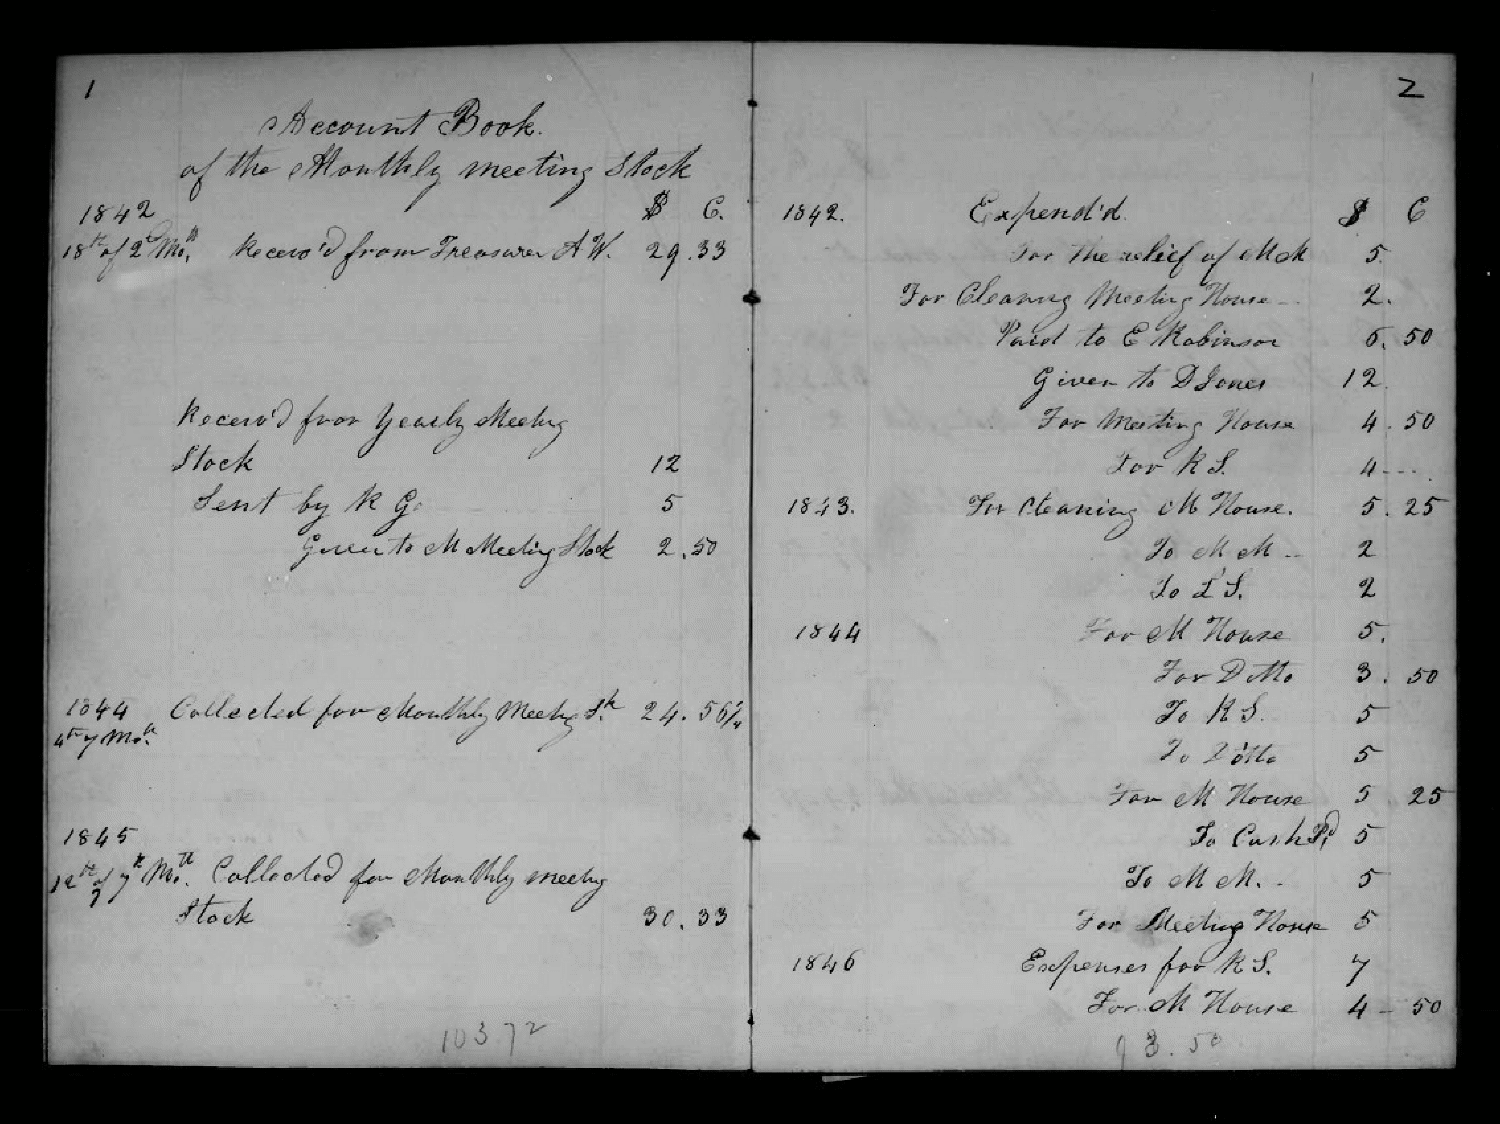 1
Account Book.
of the Monthly meeting Stock
1842 $ C.
18th of 2d Mo. Receiv'd from Treasurer A W. 29.33
Receiv'd from Yearly Meeting
Stock 12
Sent by R G 5
Given to M Meeting Stock 2.50
1844 Collected for Monthly Meeting St. 24.56¼
4th 7 Mo.
1845
12th of 7th Mo. Collected for Monthly meeting
Stock 30.33
103 72
2
1842. Expend'd. $ C
For the relief of M M 5.
For Cleaning Meeting House - - 2.
Paid to E Robinson 6.50
Given to D Jones 12
For Meeting House 4.50
For R S. 4 - - -
1843. For Cleaning M House. 5.25
To M M - - 2
To L S. 2
1844 For M House 5.
For Ditto 3.50
To R S. 5
To Ditto 5
For M House 5 25
To Cash Pd 5
To M M. - 5
For Meeting House 5
1846 Expenses for R S. 7
For M House 4 - 50
93.50